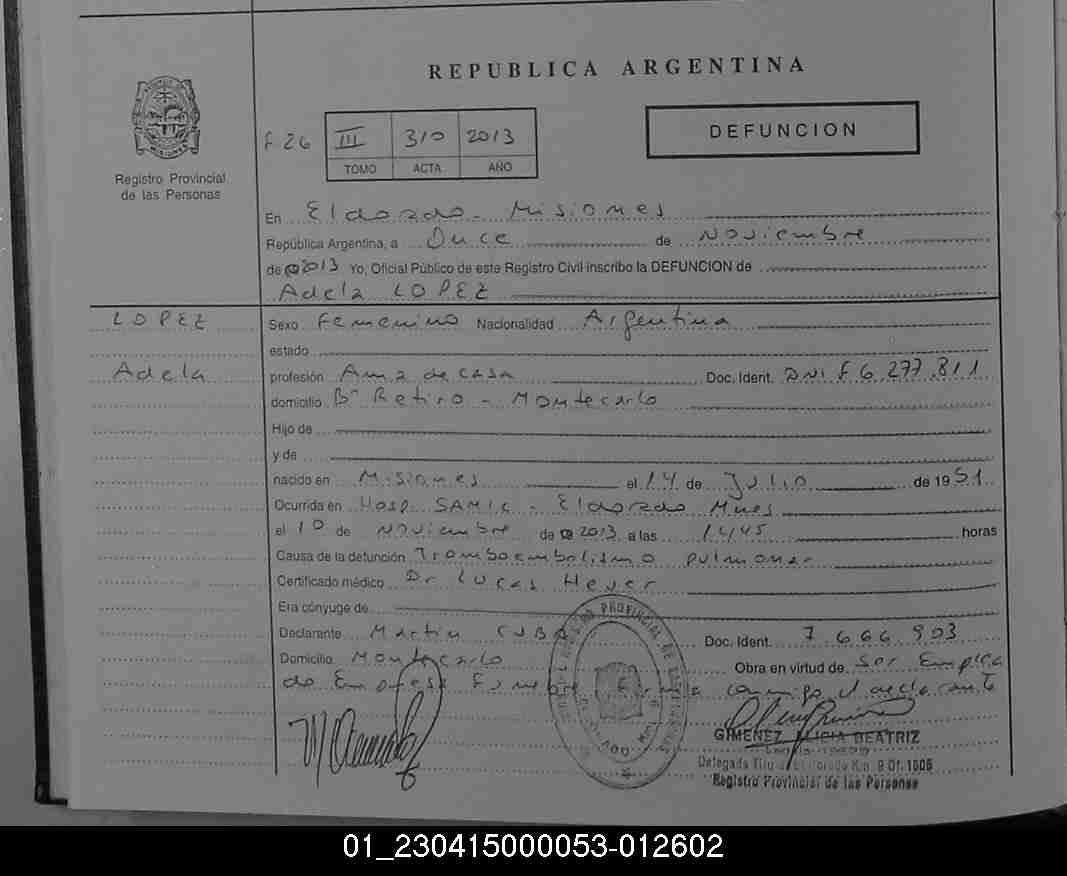 REPUBLICA ARGENTINA
DEFUNCION
F 26 III 310 2013
TOMO ACTA AÑO
Registro Provincial
de las Personas
En Eldorado - Misiones
República Argentina, a Once de Noviembre
de 2013 Yo, Oficial Público de este Registro Civil inscribo la DEFUNCION de
Adela LOPEZ
LOPEZ
Adela
Sexo Femenino Nacionalidad Argentina
estado
profesión Ama de casa Doc. Ident. DNI F 6 277 811
domicilio Bº Retiro - Montecarlo
Hijo de
y de
nacido en Misiones el 14 de Julio de 1951
Ocurrida en Hosp SAMIC - Eldorado Mnes
el 10 de Noviembre de 2013 a las 1445 horas
Causa de la defunción Tromboembolismo pulmonar
Certificado médico Dr Lucas Heyer
Era cónyuge de
Declarante Martin Doc. Ident. 7 666 903
Domicilio Montecarlo Obra en virtud de Ser Emplea
do Empresa Funebre Firma conmigo el declarante
GIMENEZ ALICIA BEATRIZ
Registro Provincial de las Personas
01_230415000053-012602